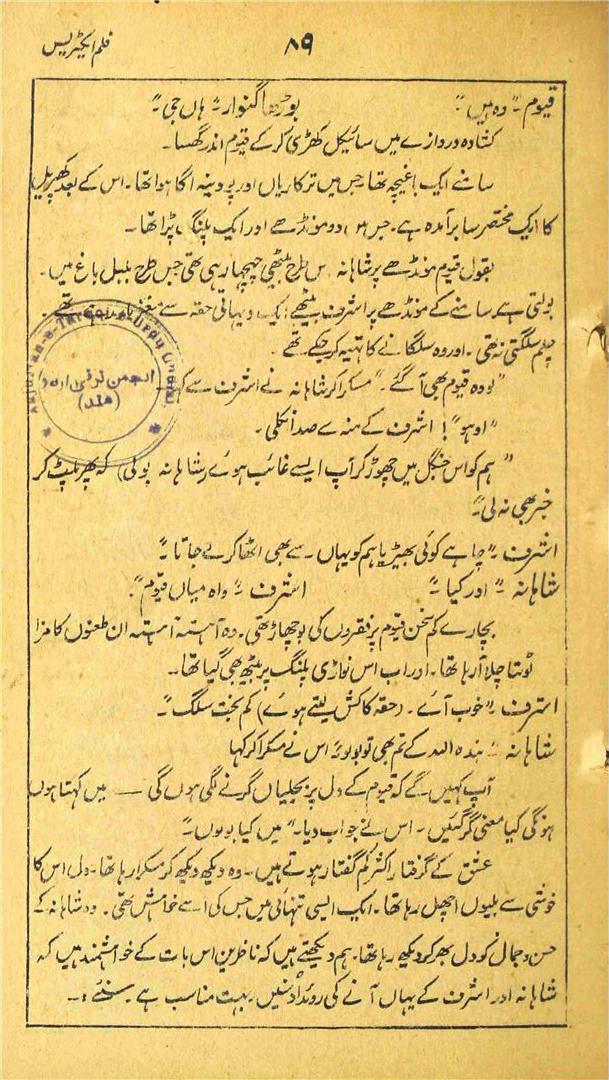 فلم ایکٹریس
۸۹
قیوم۔ "وہ ہیں"۔ بوڑھا گنوار۔ "ہاں جی"۔
کشادہ دروازے میں سائیکل کھڑی کر کے قیوم اندر گھسا۔
سامنے ایک باغیچہ تھا جس میں ترکاریاں اور پودینہ اگا ہوا تھا۔ اس کے بعد کھپریل
کا ایک مختصر سا برآمدہ ہے۔ جس میں دو مونڈھے اور ایک پلنگ پڑا تھا۔
بقول قیوم مونڈھے پر شاہانہ اس طرح بیٹھی چہچہا رہی تھی جس طرح بلبل باغ میں۔
بولتی ہے سامنے کے مونڈھے پر اشرف بیٹھے ایک دیہاتی حقہ سے
چلم سلگتی نہ تھی۔ اور وہ سلگانے کا تہیہ کر چکے تھے
"لو وہ قیوم بھی آ گئے۔" مسکرا کر شاہانہ نے اشرف سے کہا۔
"اوہو"! اشرف کے منہ سے صدا نکلی۔
"ہم کو اس جنگل میں چھوڑ کر آپ ایسے غائب ہوئے (شاہانہ بولی) کہ پھر پلٹ کر
خبر بھی نہ لی"۔
اشرف۔ "چاہے کوئی بھیڑیا ہم کو یہاں سے بھی اٹھا کر لے جاتا"۔
شاہانہ۔ "اور کیا"۔ اشرف۔ "واہ میاں قیوم"۔
بچارے کم سخن قیوم پر فقروں کی بوچھاڑ تھی۔ وہ آہستہ آہستہ ان طعنوں کا مزا
لوٹتا چلا آ رہا تھا۔ اور اب اس نواڑی پلنگ پر بیٹھ بھی گیا تھا۔
اشرف۔ "خوب آئے۔ (حقہ کا کش لیتے ہوئے) کم بخت سلگ"۔
شاہانہ۔ "بندہ اللہ کے تم بھی تو بولو" اس نے مسکرا کر کہا
آپ کہیں گے کہ قیوم کے دل پر بجلیاں گرنے لگی ہوں گی —— میں کہتا ہوں
ہونگی کیا معنی گر گئیں۔ اس نے جواب دیا۔ "میں کیا بولوں"۔
عشق کے گرفتار اکثر کم گفتار ہوتے ہیں۔ وہ دیکھ دیکھ کر مسکرا رہا تھا۔ دل اس کا
خوشی سے بلیوں اچھل رہا تھا۔ ایک ایسی تنہائی میں جس کی اسے خواہش تھی۔ وہ شاہانہ کے
حسن و جمال کو دل بھر کر دیکھ رہا تھا۔ ہم دیکھتے ہیں کہ ناظرین اس بات کے خواہشمند ہیں کہ
شاہانہ اور اشرف کے یہاں آنے کی روئداد سنیں۔ بہت مناسب ہے۔ سنئے :۔
انجمن ترقی اردو
(ہند)